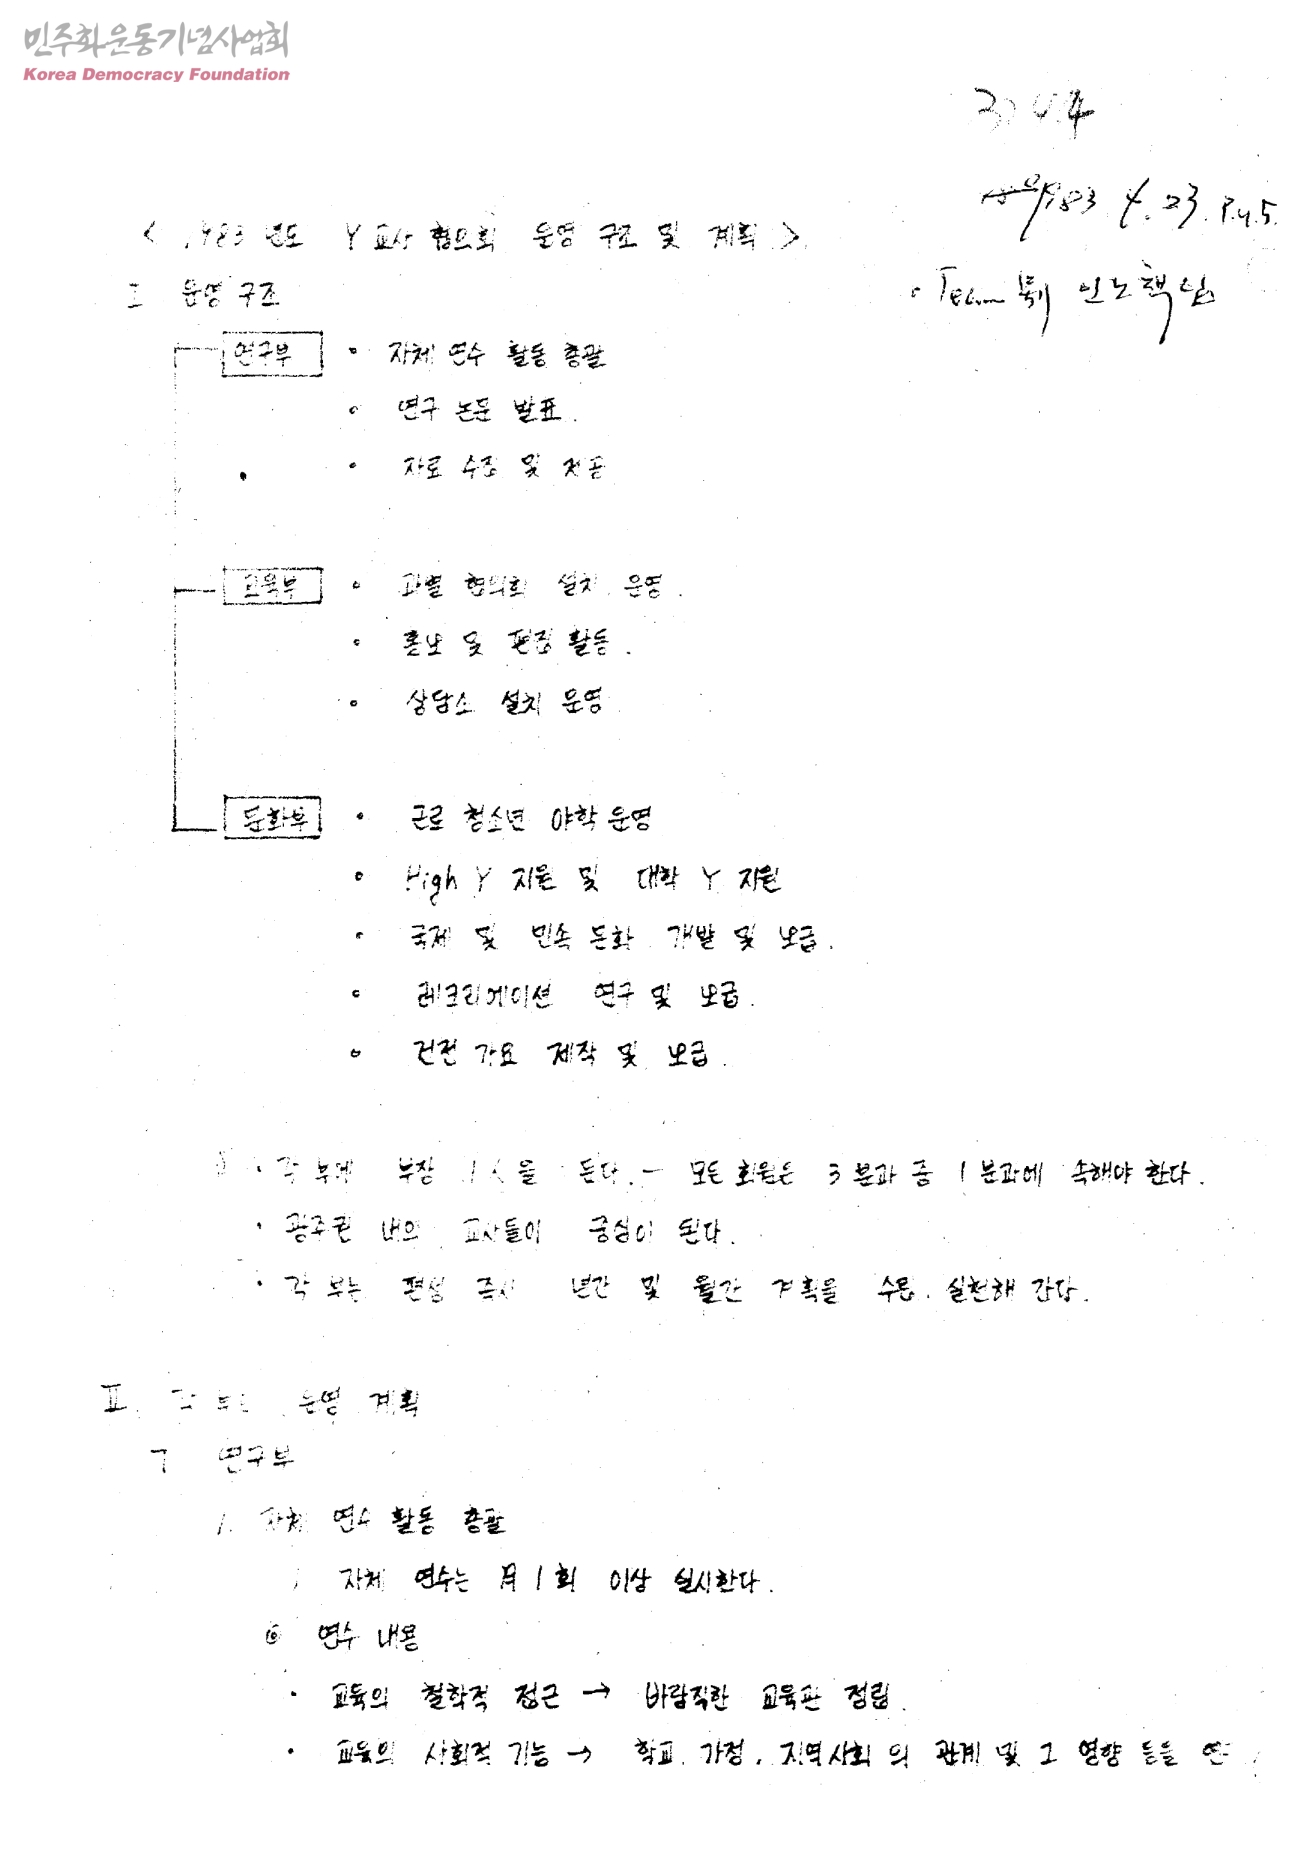 민주화운동기념사업회
Korea Democracy Foundation
1983. 4. 23. P.M.5.
< 1983년도 Y 교사 협의회 운영 구조 및 계획 >
Team 인도책임
I 운영 구조
연구부 ∘ 자체 연수 활동 총괄
∘ 연구 논문 발표.
∘ 자료 수집 및 제공
교육부 ∘ 과별 협의회 설치 운영.
∘ 홍보 및 편집 활동.
∘ 상담소 설치 운영
문화부 ∘ 근로 청소년 야학 운영
∘ High Y 지원 및 대학 Y 지원
∘ 국제 및 민속 문화 개발 및 보급.
∘ 레크리에이션 연구 및 보급.
∘ 건전 가요 제작 및 보급.
· 각 부에 부장 1人을 둔다. - 모든 회원은 3 분과 중 1 분과에 속해야 한다.
· 광주권 내의 교사들이 중심이 된다.
· 각 부는 편성 즉시 년간 및 월간 계획을 수립, 실천해 간다.
II. 각 부 운영 계획
ㄱ 연구부
1. 자체 연수 활동 총괄
자체 연수는 月 1회 이상 실시한다.
◎ 연수 내용
· 교육의 철학적 접근 → 바람직한 교육관 정립.
· 교육의 사회적 기능 → 학교, 가정, 지역사회의 관계 및 그 영향 등을 연